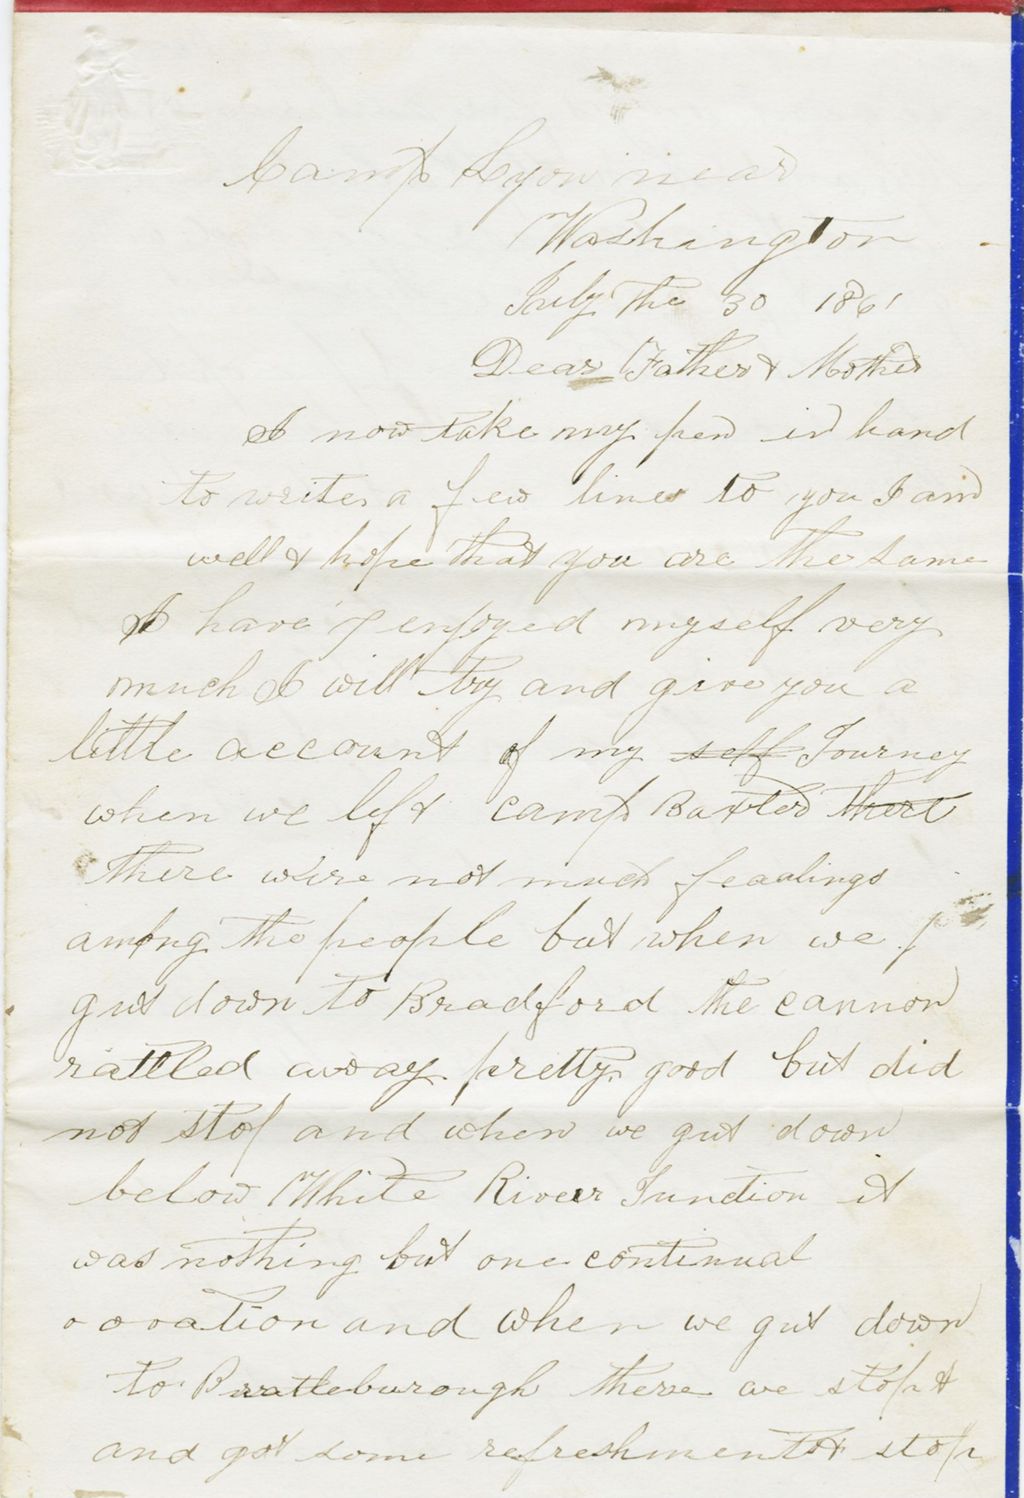 Camp Lyon near
Washington
July The 30 1861
Dear Father & Mother
I now take my pen in hand
to write a few lines to you I am
well & hope that you are the same
I have enjoyed myself very
much I will try and give you a
little account of my self Journey
when we left camp Baxter there
there were not much feadlings
among the people but when we
gut down to Bradford the cannon
rattled away pretty good but did
not stop and when we gut down
below White River Junction it
was nothing but one continual
ovation and when we gut down
to Brattleburough there we stopt
and got some refreshments stop